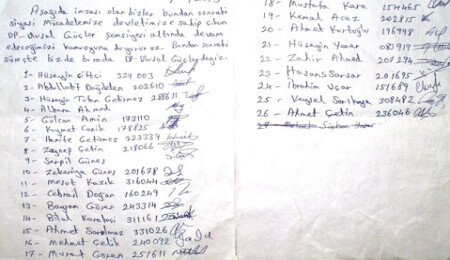 Aşağıda imzası olan bizler bundan sonraki
siyasi Mücadelemize devletimize sahip çıkan
DP-Ulusal Güçler şemsiyesi altında devam
edeceğimizi kamuoyuna duyururuz. Bundan sonraki
süreçte biz de burada DP-Ulusal Güçlerdeyiz.
1- Hüseyin Çiftçi 329 003
2- Abdullatif Dağdelen 202610
3- Hüseyin Tufan Getimez 288611
4- Albana Ahmad
5- Gülcan Amin 193110
6- Kıymet Canik 178825
7- Hanife Getimez 223339
8- Zeynep Çetin 218066
9- Serpil Güneş
10- Zekeriya Güneş 201678
11- Mesut Kazık 316044
12- Cebrail Doğan 160249
13- Bayram Gören 243314
14- Bilal Karabeci 311161
15- Ahmet Sarılmaz 331026
16- Mehmet Çelik 240092
17- Murat Gören 251611
18- Mustafa Kara 154465
19- Kemal Araz 202815
20- Ahmet Kurtoğlu 196998
21- Hüseyin Yaşar 085919
22- Zahir Ahmad 208294
23- Hasan Sarsar 201695
24- İbrahim Uçar 151689
25- Veysel Sarıkaya 308482
26- Ahmet Çetin 236046
27-